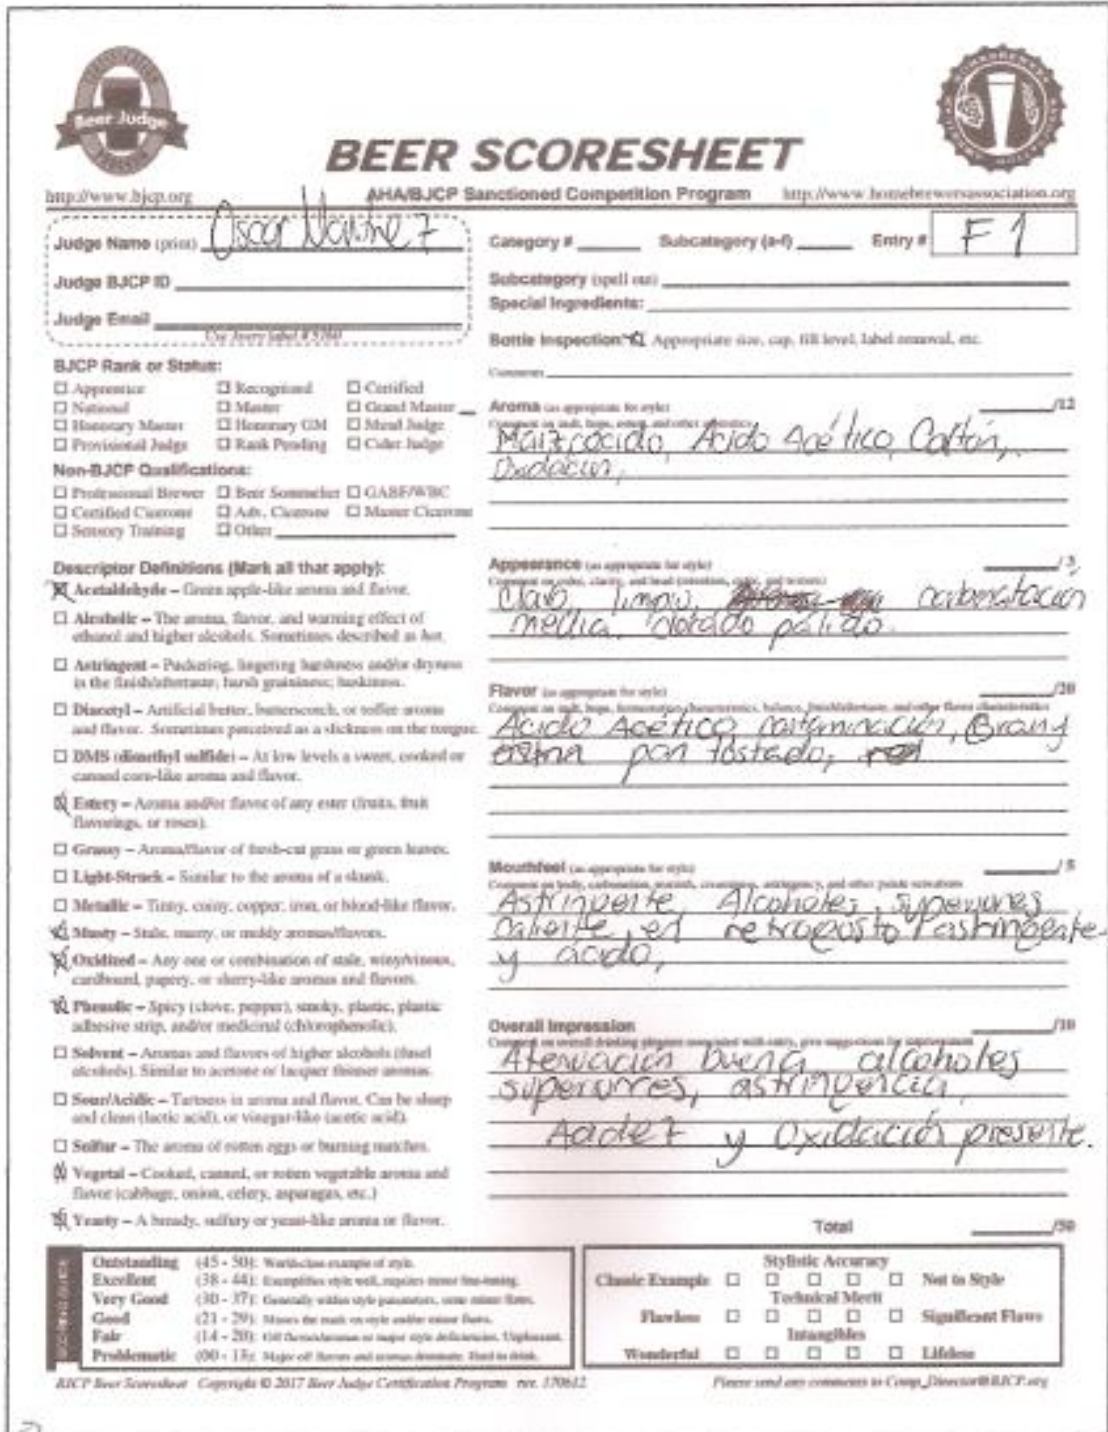 Beer Judge
BEER SCORESHEET
http://www.bjcp.org
AHA/BJCP Sanctioned Competition Program
http://www.homebrewersassociation.org
Judge Name (print) Oscar
Judge BJCP ID
Judge Email
Use Avery label # 5160
Category # Subcategory (a-f) Entry # F1
Subcategory (spell out)
Special Ingredients:
Bottle Inspection: Appropriate size, cap, fill level, label removal, etc.
Comments
BJCP Rank or Status:
Apprentice Recognized Certified
National Master Grand Master
Honorary Master Honorary GM Mead Judge
Provisional Judge Rank Pending Cider Judge
Non-BJCP Qualifications:
Professional Brewer Beer Sommelier GABF/WBC
Certified Cicerone Adv. Cicerone Master Cicerone
Sensory Training Other
Descriptor Definitions (Mark all that apply):
Acetaldehyde – Green apple-like aroma and flavor.
Alcoholic – The aroma, flavor, and warming effect of
ethanol and higher alcohols. Sometimes described as hot.
Astringent – Puckering, lingering harshness and/or dryness
in the finish/aftertaste; harsh graininess; huskiness.
Diacetyl – Artificial butter, butterscotch, or toffee aroma
and flavor. Sometimes perceived as a slickness on the tongue.
DMS (dimethyl sulfide) – At low levels a sweet, cooked or
canned corn-like aroma and flavor.
Estery – Aroma and/or flavor of any ester (fruits, fruit
flavorings, or roses).
Grassy – Aroma/flavor of fresh-cut grass or green leaves.
Light-Struck – Similar to the aroma of a skunk.
Metallic – Tinny, coiny, copper, iron, or blood-like flavor.
Musty – Stale, musty, or moldy aromas/flavors.
Oxidized – Any one or combination of stale, winy/vinous,
cardboard, papery, or sherry-like aromas and flavors.
Phenolic – Spicy (clove, pepper), smoky, plastic, plastic
adhesive strip, and/or medicinal (chlorophenolic).
Solvent – Aromas and flavors of higher alcohols (fusel
alcohols). Similar to acetone or lacquer thinner aromas.
Sour/Acidic – Tartness in aroma and flavor. Can be sharp
and clean (lactic acid), or vinegar-like (acetic acid).
Sulfur – The aroma of rotten eggs or burning matches.
Vegetal – Cooked, canned, or rotten vegetable aroma and
flavor (cabbage, onion, celery, asparagus, etc.)
Yeasty – A bready, sulfury or yeast-like aroma or flavor.
Aroma (as appropriate for style) /12
Comment on malt, hops, esters, and other aromatics
Maiz cocido, Acido Acético, Cartón,
Oxidacion,
Appearance (as appropriate for style) /3
Comment on color, clarity, and head (retention, color, and texture)
Claro, limpio, carbonatación
media. dorado palido.
Flavor (as appropriate for style) /20
Comment on malt, hops, fermentation characteristics, balance, finish/aftertaste, and other flavor characteristics
Acido Acético, contaminación,
pan tostado,
Mouthfeel (as appropriate for style) /5
Comment on body, carbonation, warmth, creaminess, astringency, and other palate sensations
Astringente, Alcoholes superiores
caliente, en retrogosto astringente
y acido,
Overall Impression /10
Comment on overall drinking pleasure associated with entry, give suggestions for improvement
Atenuación buena, alcoholes
superiores, astringencia,
Acidez y Oxidación presente.
Total /50
SCORING GUIDE
Outstanding (45 - 50): World-class example of style.
Excellent (38 - 44): Exemplifies style well, requires minor fine-tuning.
Very Good (30 - 37): Generally within style parameters, some minor flaws.
Good (21 - 29): Misses the mark on style and/or minor flaws.
Fair (14 - 20): Off flavors/aromas or major style deficiencies. Unpleasant.
Problematic (00 - 13): Major off flavors and aromas dominate. Hard to drink.
Stylistic Accuracy
Classic Example Not to Style
Technical Merit
Flawless Significant Flaws
Intangibles
Wonderful Lifeless
BJCP Beer Scoresheet Copyright © 2017 Beer Judge Certification Program rev. 170612
Please send any comments to Comp_Director@BJCP.org